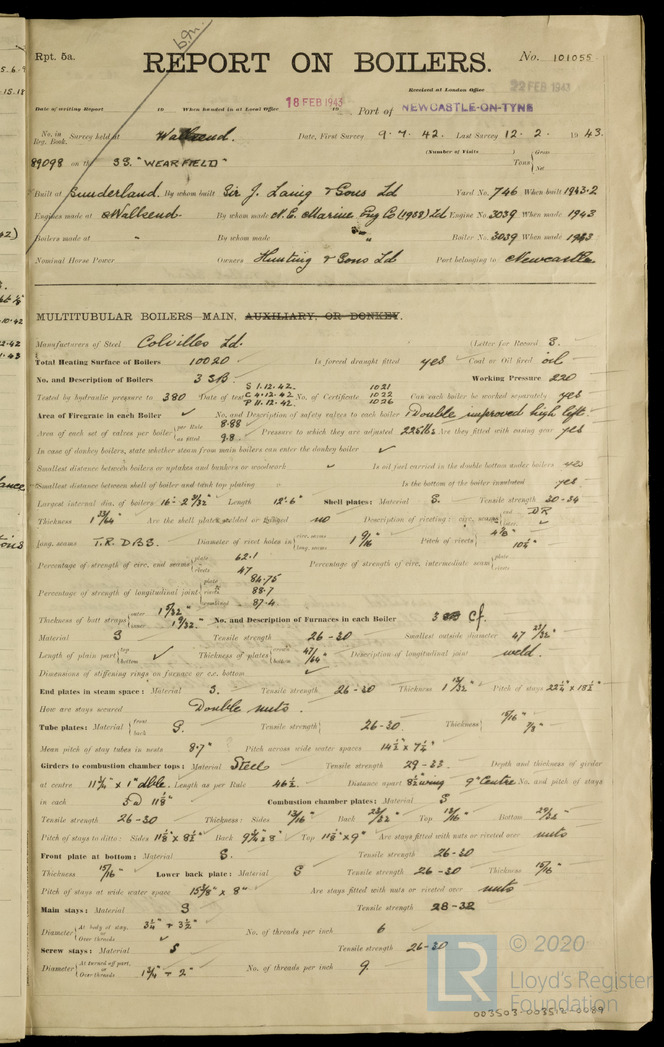 Rpt. 5a.
REPORT ON BOILERS.
No. 101055
Received at London Office 22 FEB 1943
Date of writing Report 19 When handed in at Local Office 18 FEB 1943 19 Port of NEWCASTLE-ON-TYNE
No. in Reg. Book. Survey held at Wallsend. Date, First Survey 9.7.42. Last Survey 12.2. 1943.
(Number of Visits )
89098 on the SS. "WEARFIELD" Tons { Gross Net
Built at Sunderland. By whom built Sir J. Laing & Sons Ld Yard No. 746 When built 1943.2
Engines made at Wallsend By whom made N.E. Marine Eng Co (1938) Ld Engine No. 3039 When made 1943
Boilers made at " By whom made " Boiler No. 3039 When made 1943
Nominal Horse Power Owners Hunting & Sons Ld Port belonging to Newcastle
MULTITUBULAR BOILERS MAIN, AUXILIARY, OR DONKEY.
Manufacturers of Steel Colvilles Ld. (Letter for Record S.
Total Heating Surface of Boilers 10020 Is forced draught fitted yes Coal or Oil fired oil
No. and Description of Boilers 3 SB. Working Pressure 220
Tested by hydraulic pressure to 380 Date of test S 1.12.42. C 4.12.42 P 11.12.42. No. of Certificate 1021 1022 1026 Can each boiler be worked separately yes
Area of Firegrate in each Boiler ✓ No. and Description of safety valves to each boiler Double improved high lift
Area of each set of valves per boiler { per Rule 8.88 as fitted 9.8 Pressure to which they are adjusted 225 lbs Are they fitted with easing gear yes
In case of donkey boilers, state whether steam from main boilers can enter the donkey boiler ✓
Smallest distance between boilers or uptakes and bunkers or woodwork ✓ Is oil fuel carried in the double bottom under boilers yes
Smallest distance between shell of boiler and tank top plating Is the bottom of the boiler insulated yes
Largest internal dia. of boilers 16'-2 3/32" Length 12'-6" Shell plates: Material S. Tensile strength 30-34
Thickness 1 33/64" Are the shell plates welded or flanged no Description of riveting: circ. seams { end DR inter. ✓
long. seams T.R. D.B.S. Diameter of rivet holes in { circ. seams long. seams 1 9/16" Pitch of rivets { 4 1/8" 10 1/4"
Percentage of strength of circ. end seams { plate 62.1 rivets 47 Percentage of strength of circ. intermediate seam { plate rivets
Percentage of strength of longitudinal joint { plate 84.75 rivets 88.7 combined 87.4
Thickness of butt straps { outer 1 5/32" inner 1 9/32" No. and Description of Furnaces in each Boiler 3 Cf.
Material S Tensile strength 26-30 Smallest outside diameter 47 23/32"
Length of plain part { top bottom ✓ Thickness of plates { crown bottom 47/64" Description of longitudinal joint weld.
Dimensions of stiffening rings on furnace or c.c. bottom ✓
End plates in steam space: Material S. Tensile strength 26-30 Thickness 1 13/32" Pitch of stays 22 1/4" x 18 1/2"
How are stays secured Double nuts.
Tube plates: Material { front back S. Tensile strength { 26-30 Thickness { 15/16" 7/8"
Mean pitch of stay tubes in nests 8.7" Pitch across wide water spaces 14 1/2" x 7 1/4"
Girders to combustion chamber tops: Material Steel Tensile strength 29-33 Depth and thickness of girder
at centre 11 3/4" x 1" dble. Length as per Rule 46 1/2 Distance apart 8 1/2" wing 9" Centre No. and pitch of stays
in each 3 @ 11 1/8" Combustion chamber plates: Material S
Tensile strength 26-30 Thickness: Sides 13/16" Back 23/32" Top 13/16" Bottom 29/32"
Pitch of stays to ditto: Sides 11 1/8" x 8 1/2" Back 9 1/4" x 8" Top 11 1/8" x 9" Are stays fitted with nuts or riveted over nuts
Front plate at bottom: Material S. Tensile strength 26-30
Thickness 15/16" Lower back plate: Material S Tensile strength 26-30 Thickness 15/16"
Pitch of stays at wide water space 15 3/8" x 8" Are stays fitted with nuts or riveted over nuts
Main stays: Material S Tensile strength 28-32
Diameter { At body of stay, or Over threads 3 1/4" + 3 1/2" No. of threads per inch 6
Screw stays: Material S Tensile strength 26-30
Diameter { At turned off part, or Over threads 1 3/4" + 2" No. of threads per inch 9.
LR © 2020
Lloyd's Register
Foundation
003503-003512-0089